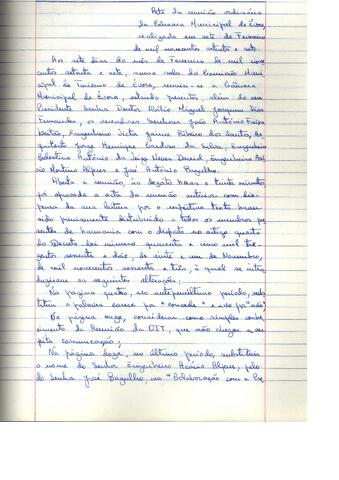 Acta da reunião ordinária
da Câmara Municipal de Évora,
realizada em sete de Fevereiro
de mil novecentos setenta e sete.
Aos sete dias do mês de Fevereiro de mil nove
centos setenta e sete, numa sala da Comissão Muni
cipal de Turismo de Évora, reuniu-se a Câmara
Municipal de Évora, estando presentes, além do seu
Presidente Senhor Doutor Abílio Miguel Joaquim Dias
Fernandes, os vereadores Senhores João António
Engenheiro Victor Jaime Ribeiro dos Santos, Ar
quitecto Jorge Henrique Cardoso da Silva, Engenheiro
Celestino António da Veiga Neves David, Engenheiro Acá
cio Martins Alpues e José António Bagulho.
Aberta a reunião, às dezoito horas e trinta minutos
foi aprovada a acta da reunião anterior com dis-
pensa da sua leitura por o respectivo texto haver
sido previamente distribuído a todos os membros pre
sentes de harmonia com o disposto no artigo quarto
do Decreto Lei número quarenta e cinco mil tre
zentos sessenta e dois, de vinte e um de Novembro,
de mil novecentos sessenta e três, à qual se intro
duziram as seguintes alterações:
Na página quatro, no antepenúltimo período, subs
tituir a palavra carece por "concede" e no por "não"
Na página onze, considerar como simples conhe
cimento da Reunião da OIT, que não chegou a ser
feita comunicação;
Na página doze, no último período, substituir
o nome do Senhor Engenheiro Acácio Alpues, pelo
do Senhor José Bagulho, na "Colaboração com a